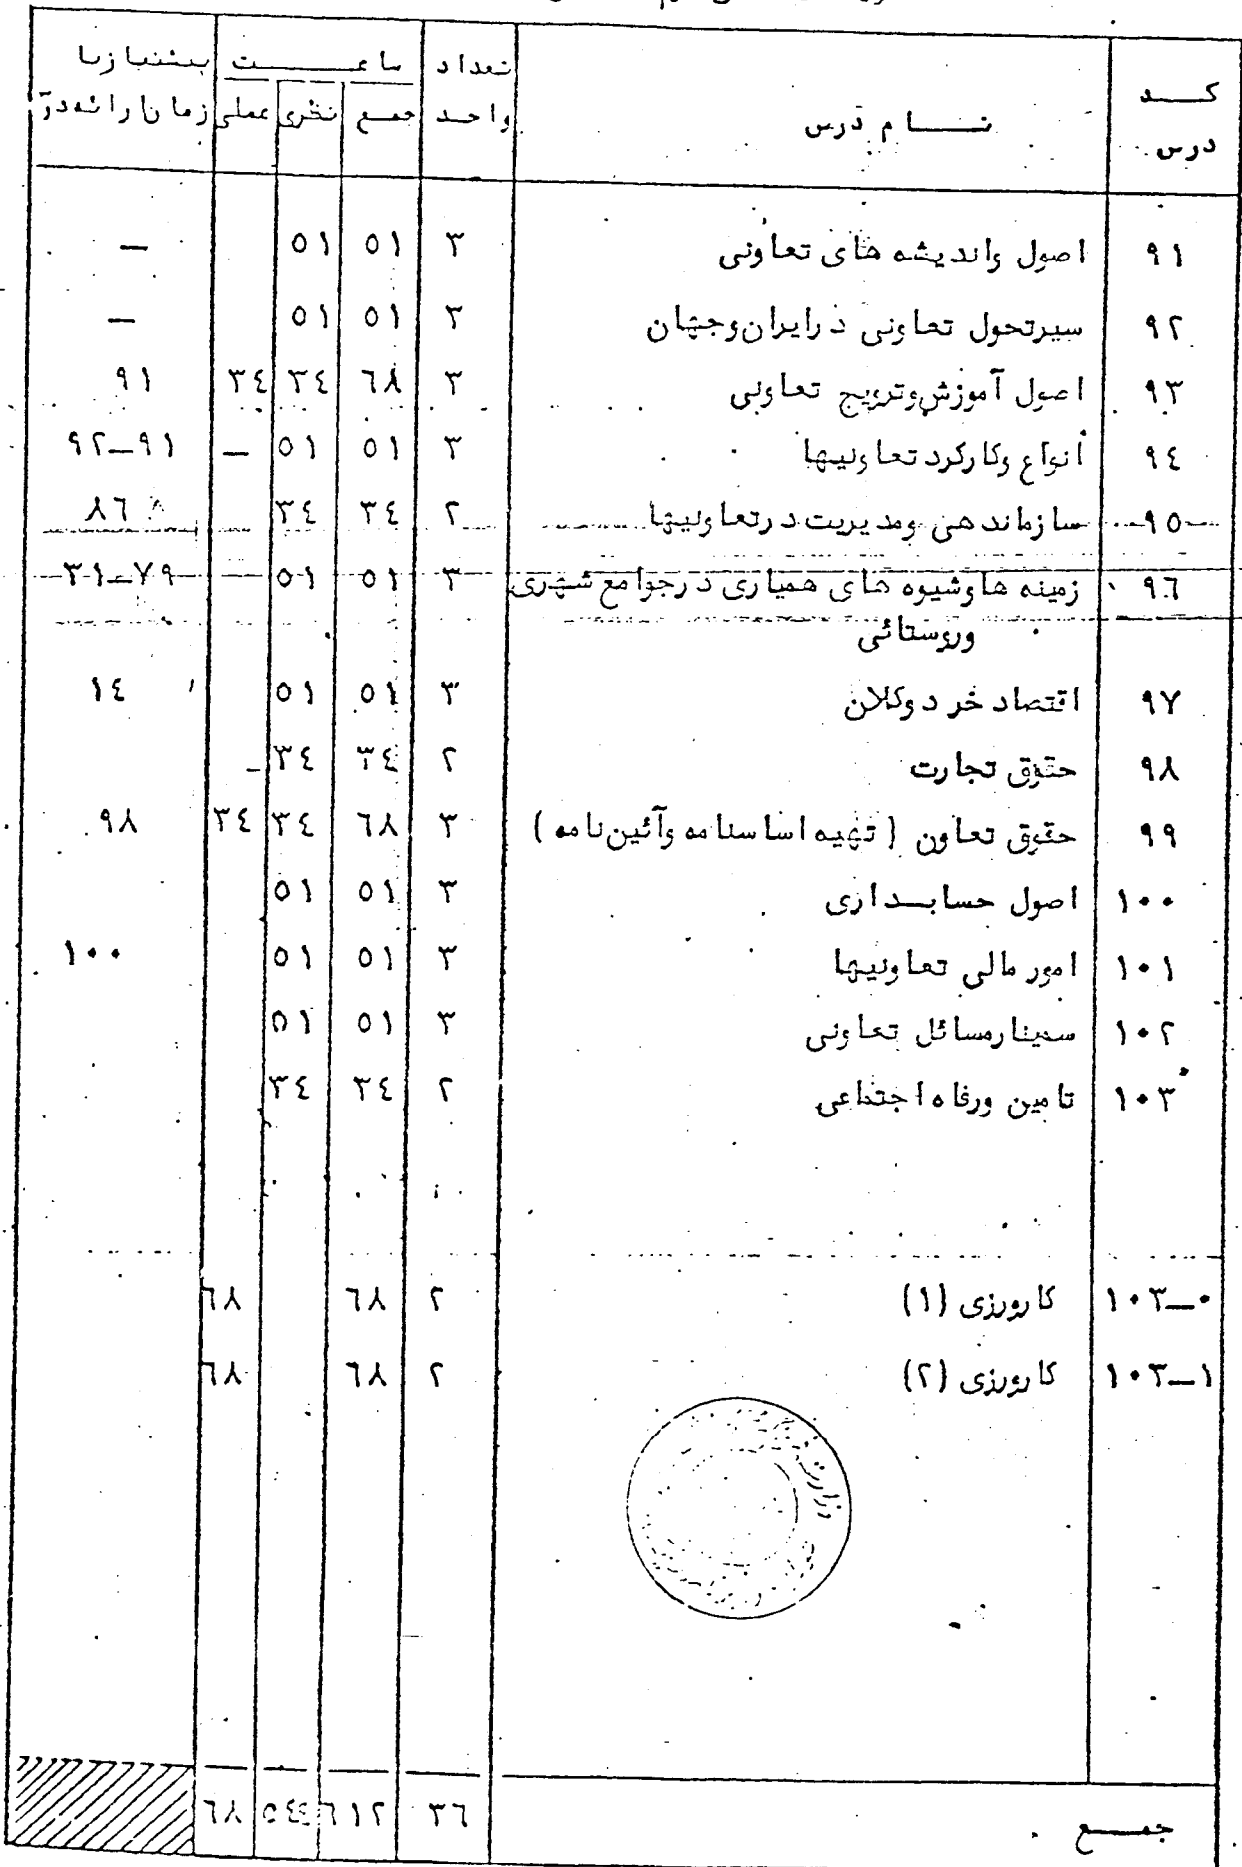 کد درس | نام درس | تعداد واحد | ساعت | پیشنیاز یا زمان ارائه درس
جمع | نظری | عملی
۹۱ | اصول واندیشه های تعاونی | ۳ | ۵۱ | ۵۱ | | —
۹۲ | سیرتحول تعاونی درایران وجهان | ۳ | ۵۱ | ۵۱ | | —
۹۳ | اصول آموزش وترویج تعاونی | ۳ | ۶۸ | ۳۴ | ۳۴ | ۹۱
۹۴ | انواع وکارکرد تعاونیها | ۳ | ۵۱ | ۵۱ | — | ۹۱—۹۲
۹۵ | سازماندهی ومدیریت درتعاونیها | ۲ | ۳۴ | ۳۴ | | ۸۶
۹۶ | زمینه هاوشیوه های همیاری درجوامع شهری | ۳ | ۵۱ | ۵۱ | | ۷۹—۳۱
وروستائی
۹۷ | اقتصاد خرد وکلان | ۳ | ۵۱ | ۵۱ | | ۱۴
۹۸ | حقوق تجارت | ۲ | ۳۴ | ۳۴ | — |
۹۹ | حقوق تعاون (تهیه اساسنامه وآئین نامه) | ۳ | ۶۸ | ۳۴ | ۳۴ | ۹۸
۱۰۰ | اصول حسابداری | ۳ | ۵۱ | ۵۱
۱۰۱ | امور مالی تعاونیها | ۳ | ۵۱ | ۵۱ | | ۱۰۰
۱۰۲ | سمینارمسائل تعاونی | ۳ | ۵۱ | ۵۱
۱۰۳ | تامین ورفاه اجتماعی | ۲ | ۳۴ | ۳۴
۱۰۳—۰ | کارورزی (۱) | ۲ | ۶۸ | | ۶۸
۱۰۳—۱ | کارورزی (۲) | ۲ | ۶۸ | | ۶۸
وزارت
جمع | ۳۶ | ۶۱۲ | ۵۴۴ | ۶۸